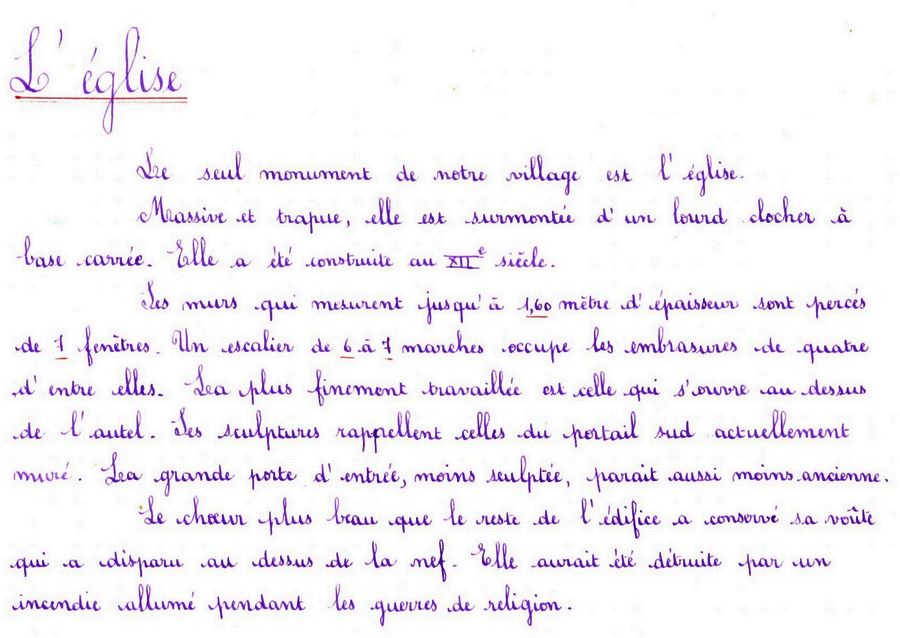 L'église
Le seul monument de notre village est l'église.
Massive et trapue, elle est surmontée d'un lourd clocher à
base carrée. Elle a été construite au XIIe siècle.
Ses murs qui mesurent jusqu'à 1,60 mètre d'épaisseur sont percés
de 7 fenêtres. Un escalier de 6 à 7 marches occupe les embrasures de quatre
d'entre elles. La plus finement travaillée est celle qui s'ouvre au dessus
de l'autel. Ses sculptures rappellent celles du portail sud actuellement
muré. La grande porte d'entrée, moins sculptée, parait aussi moins ancienne.
Le chœur plus beau que le reste de l'édifice a conservé sa voûte
qui a disparu au dessus de la nef. Elle aurait été détruite par un
incendie allumé pendant les guerres de religion.